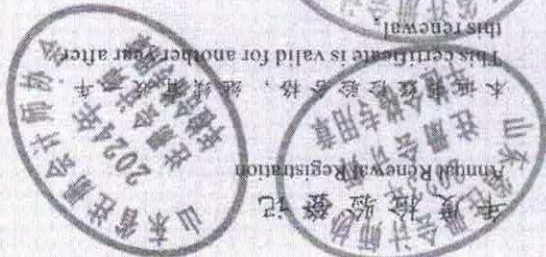 年度检验登记
Annual Renewal Registration
本证书经检验合格，继续有效一年。
This certificate is valid for another year after
this renewal.
山东省注册会计师协会
2024年
注册会计师
年检合格专用章
山东省注册会计师协会
注册会计师